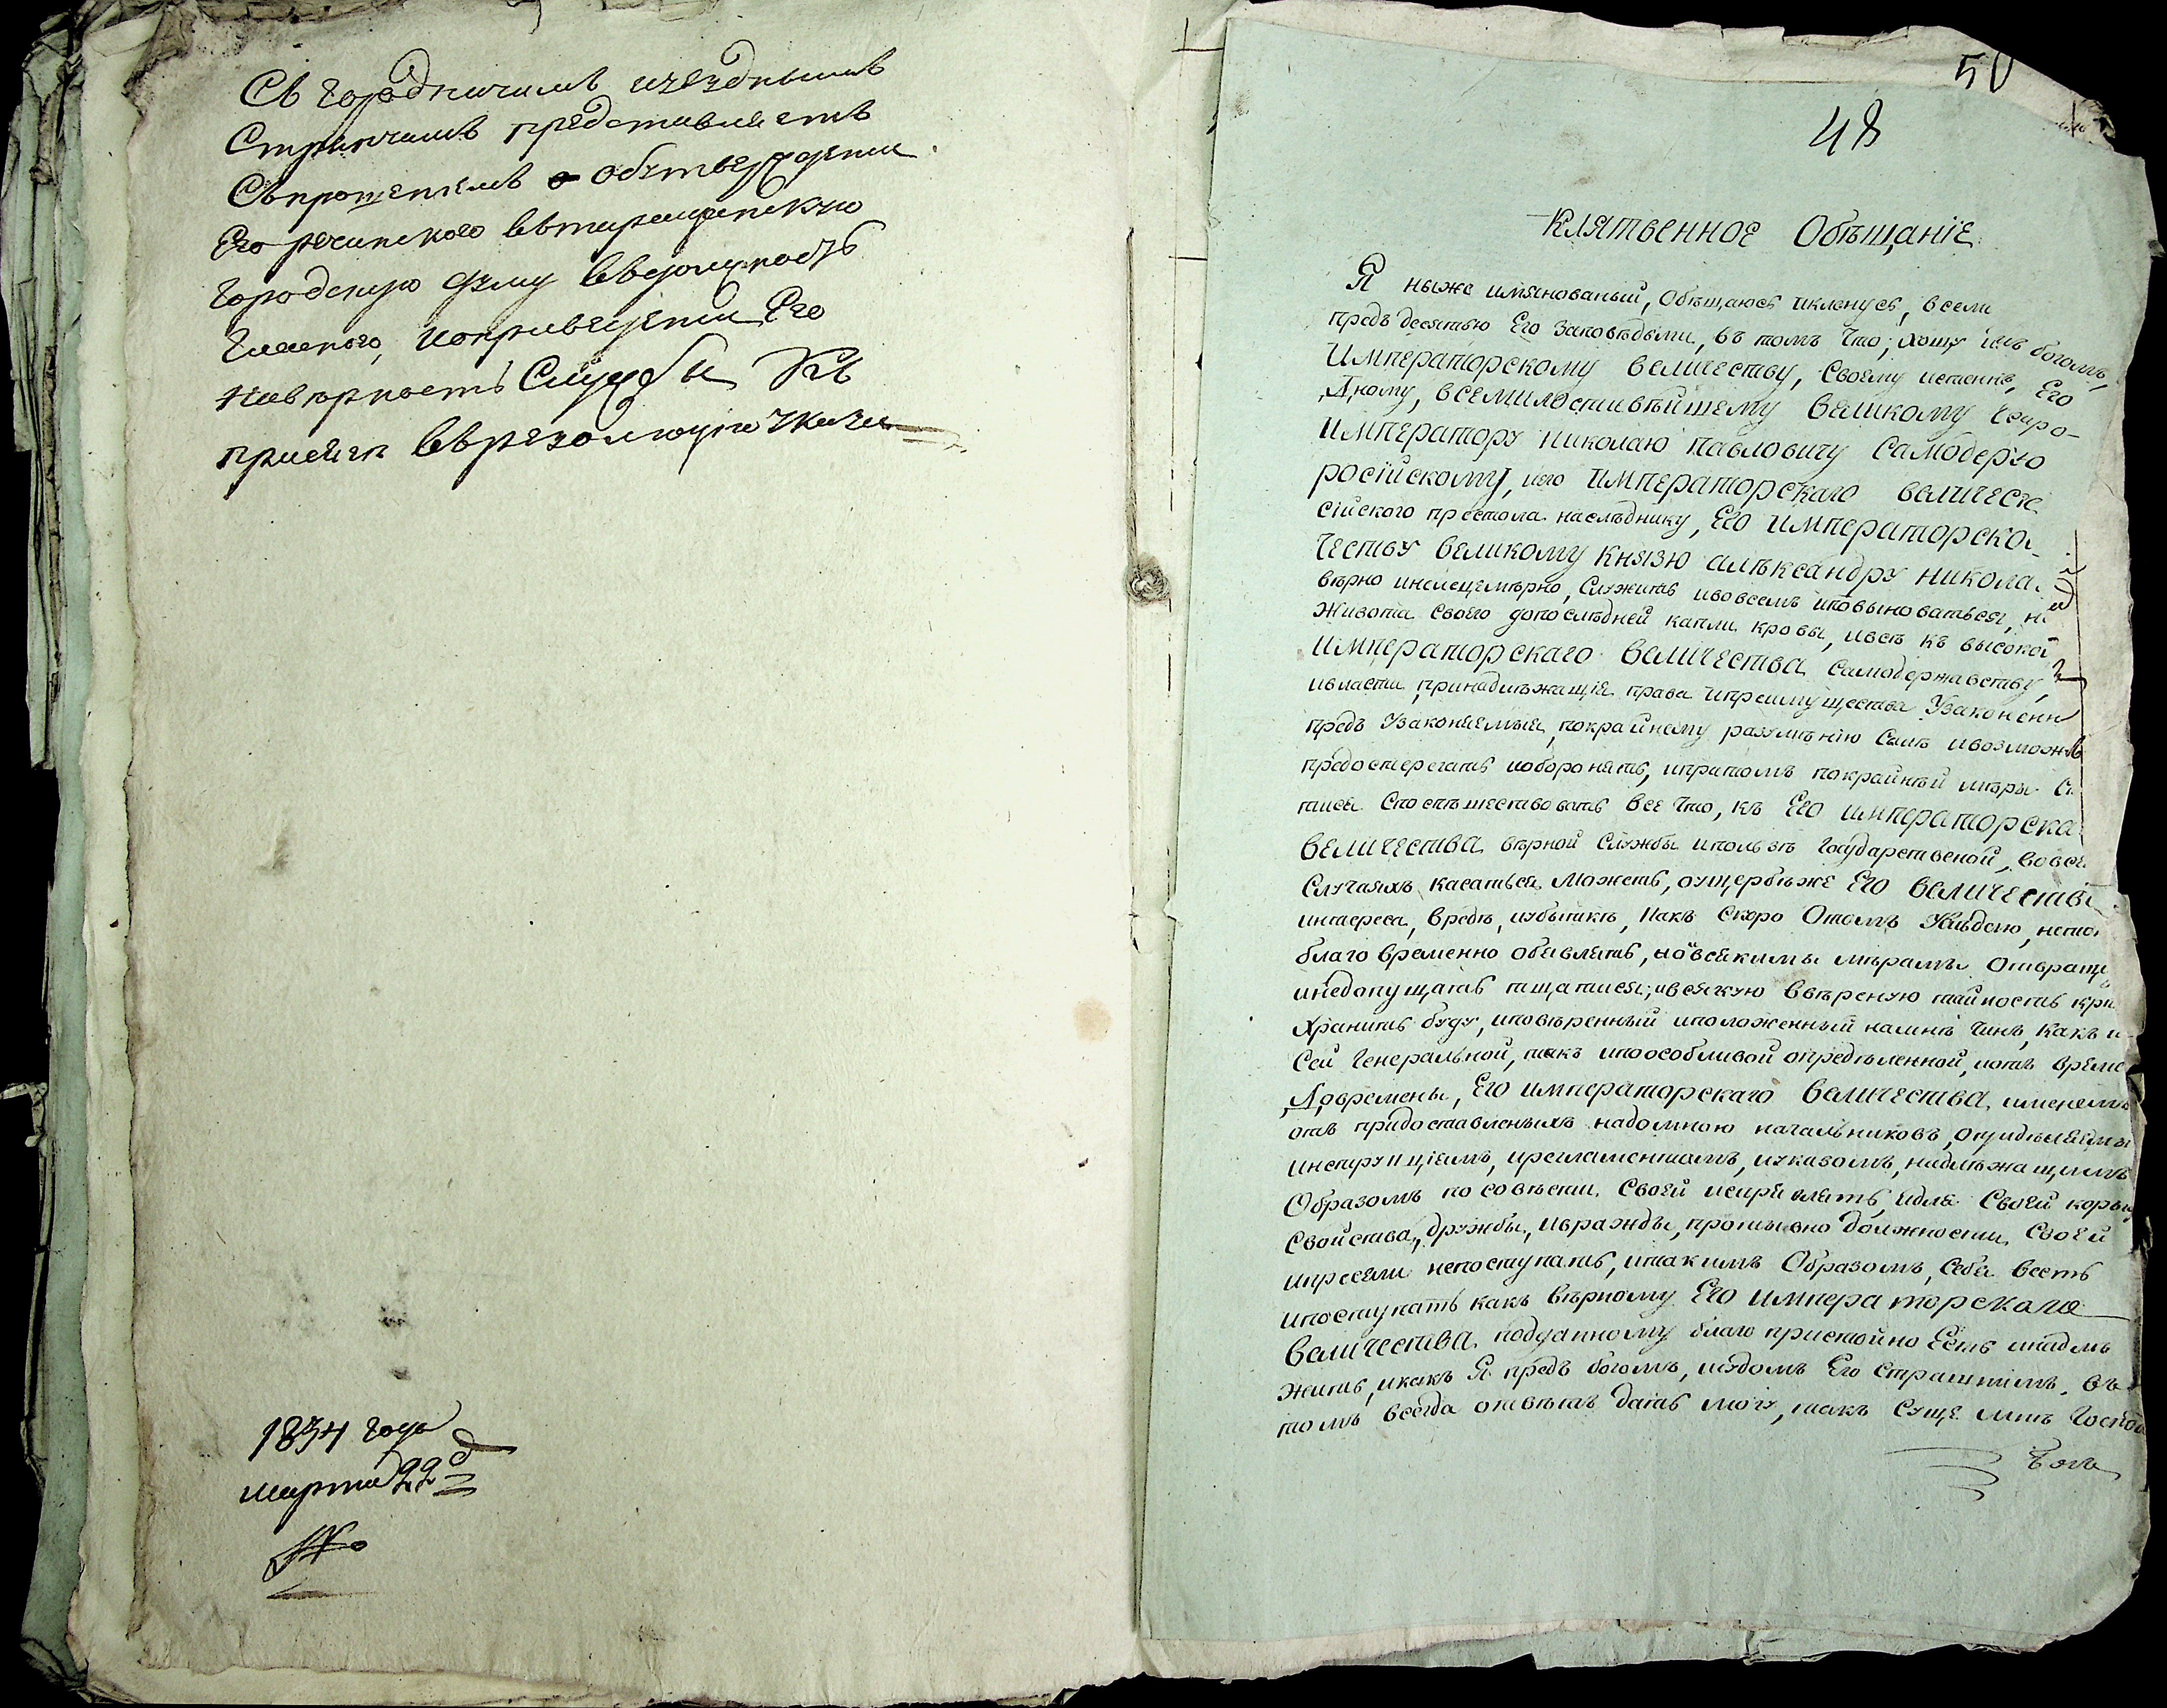 Съ городничимъ иуезднымъ
Стряпчимъ представляетъ
Съпрошениемъ о обутверждении
Его речинского
городскую думу
Гласного, иоприведении Его
Навѣрность Службы Къ
присяги
1834 года
марта 22 д
50
48
Клятвенное Обѣщаніе
Я ниже имянованый, Обѣщаюсь икленусь, всеми
предъ десятью Его Заповѣдьми, въ томъ что, хощу богомъ,
Императорскому величеству, Своему Его
всемилостивѣйшему великому
Императору николаю павловичу Самодерж
російскому, иего Императорскаго величест
сійского престола наслѣднику, Его Императорско
честву великому Князю алѣксандру никола
вѣрно инелецемѣрно, Служить ивовсемъ иповыноваться, не
живота Своего допослѣдней капли кровы, ивсѣ къ высокой
Императорскаго величества Самодержавству,
ивласти принадлѣжащія права ипреимущества Узаконенн
предъ Узаконяемыя, покрайнему разумѣнію Силѣ ивозможн
предостерегать иоборонять, ипритомъ покрайнѣй мѣры ст
тися Споспѣшествовать все что, къ Его императорска
величества вѣрной Службы иползѣ Государственой, вовся
Случаяхъ касаться Можетъ, оущербѣже Его величеств
интереса, вредѣ, иубыткѣ, какъ Скоро Отомъ Увѣдаю, нето
благо временно обявлять, но ивсякимы мѣрамы Отвращ
инедопущать тщатися; ивсякую ввѣреную тайность крѣ
Хранить буду, иповѣренный иположенный намнѣ чинъ, какъ
Сей Генеральной, такъ ипоособливой опредѣленной, иотъ време
Довремены, Его императорскаго величества, именемъ
отъ придоставленыхъ надомною начальниковъ, опредѣляемы
инструкціямъ, ирегламентамъ, иуказомъ, надлѣжащимъ
Образомъ по совѣсти Своей исправлять, идля Своей коры
Свойства, дружбы, ивражды, противно должности Своей
иприсяги непоступать, итакимъ Образомъ, себя весть
ипоступать какъ вѣрному Его императорскаго
величества подданному благо пристойно Есть инадлѣ
жить, икакъ Я предъ богомъ, исудомъ Его Страшнимъ, въ
томъ всегда отвѣтъ дать могу, такъ Суще мнѣ Господ
Богъ